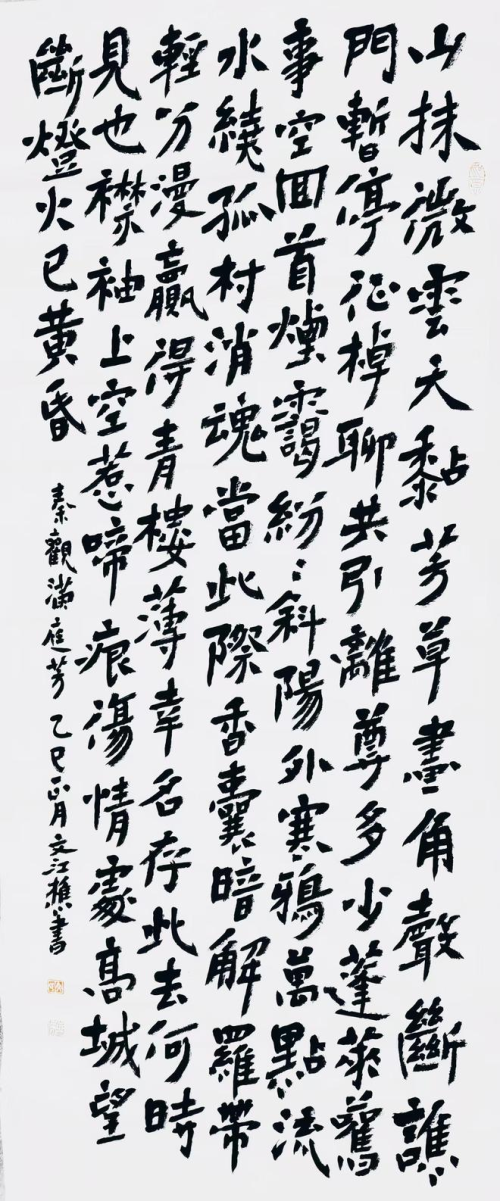 山抹微雲天黏芳草畫角聲斷譙
門暫停征棹聊共引離尊多少蓬萊舊
事空囬首煙靄紛〻斜陽外寒鴉萬點流
水繞孤村消魂當此際香囊暗解羅帶
輕分漫贏得青樓薄幸名存此去何時
見也襟袖上空惹啼痕傷情處高城望
斷燈火已黃昏
秦觀滿庭芳 乙巳正月文江樵書